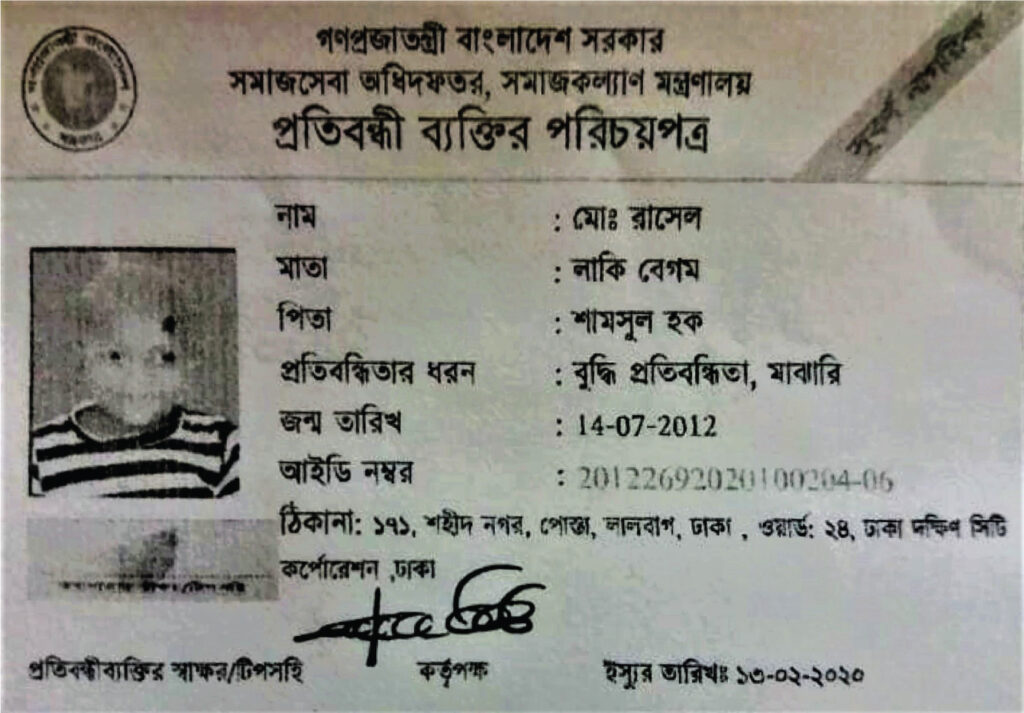 গণপ্রজাতন্ত্রী বাংলাদেশ সরকার
সমাজসেবা অধিদফতর, সমাজকল্যাণ মন্ত্রণালয়
প্রতিবন্ধী ব্যক্তির পরিচয়পত্র
সুবর্ণ নাগরিক
নাম : মোঃ রাসেল
মাতা : লাকি বেগম
পিতা : শামসুল হক
প্রতিবন্ধিতার ধরন : বুদ্ধি প্রতিবন্ধিতা, মাঝারি
জন্ম তারিখ : 14-07-2012
আইডি নম্বর : 20122692020100204-06
ঠিকানা: ১৭১, শহীদ নগর, পোস্তা, লালবাগ, ঢাকা , ওয়ার্ড: ২৪, ঢাকা দক্ষিণ সিটি
কর্পোরেশন ,ঢাকা
প্রতিবন্ধীব্যক্তির স্বাক্ষর/টিপসহি কর্তৃপক্ষ ইস্যুর তারিখঃ ১৩-০২-২০২০